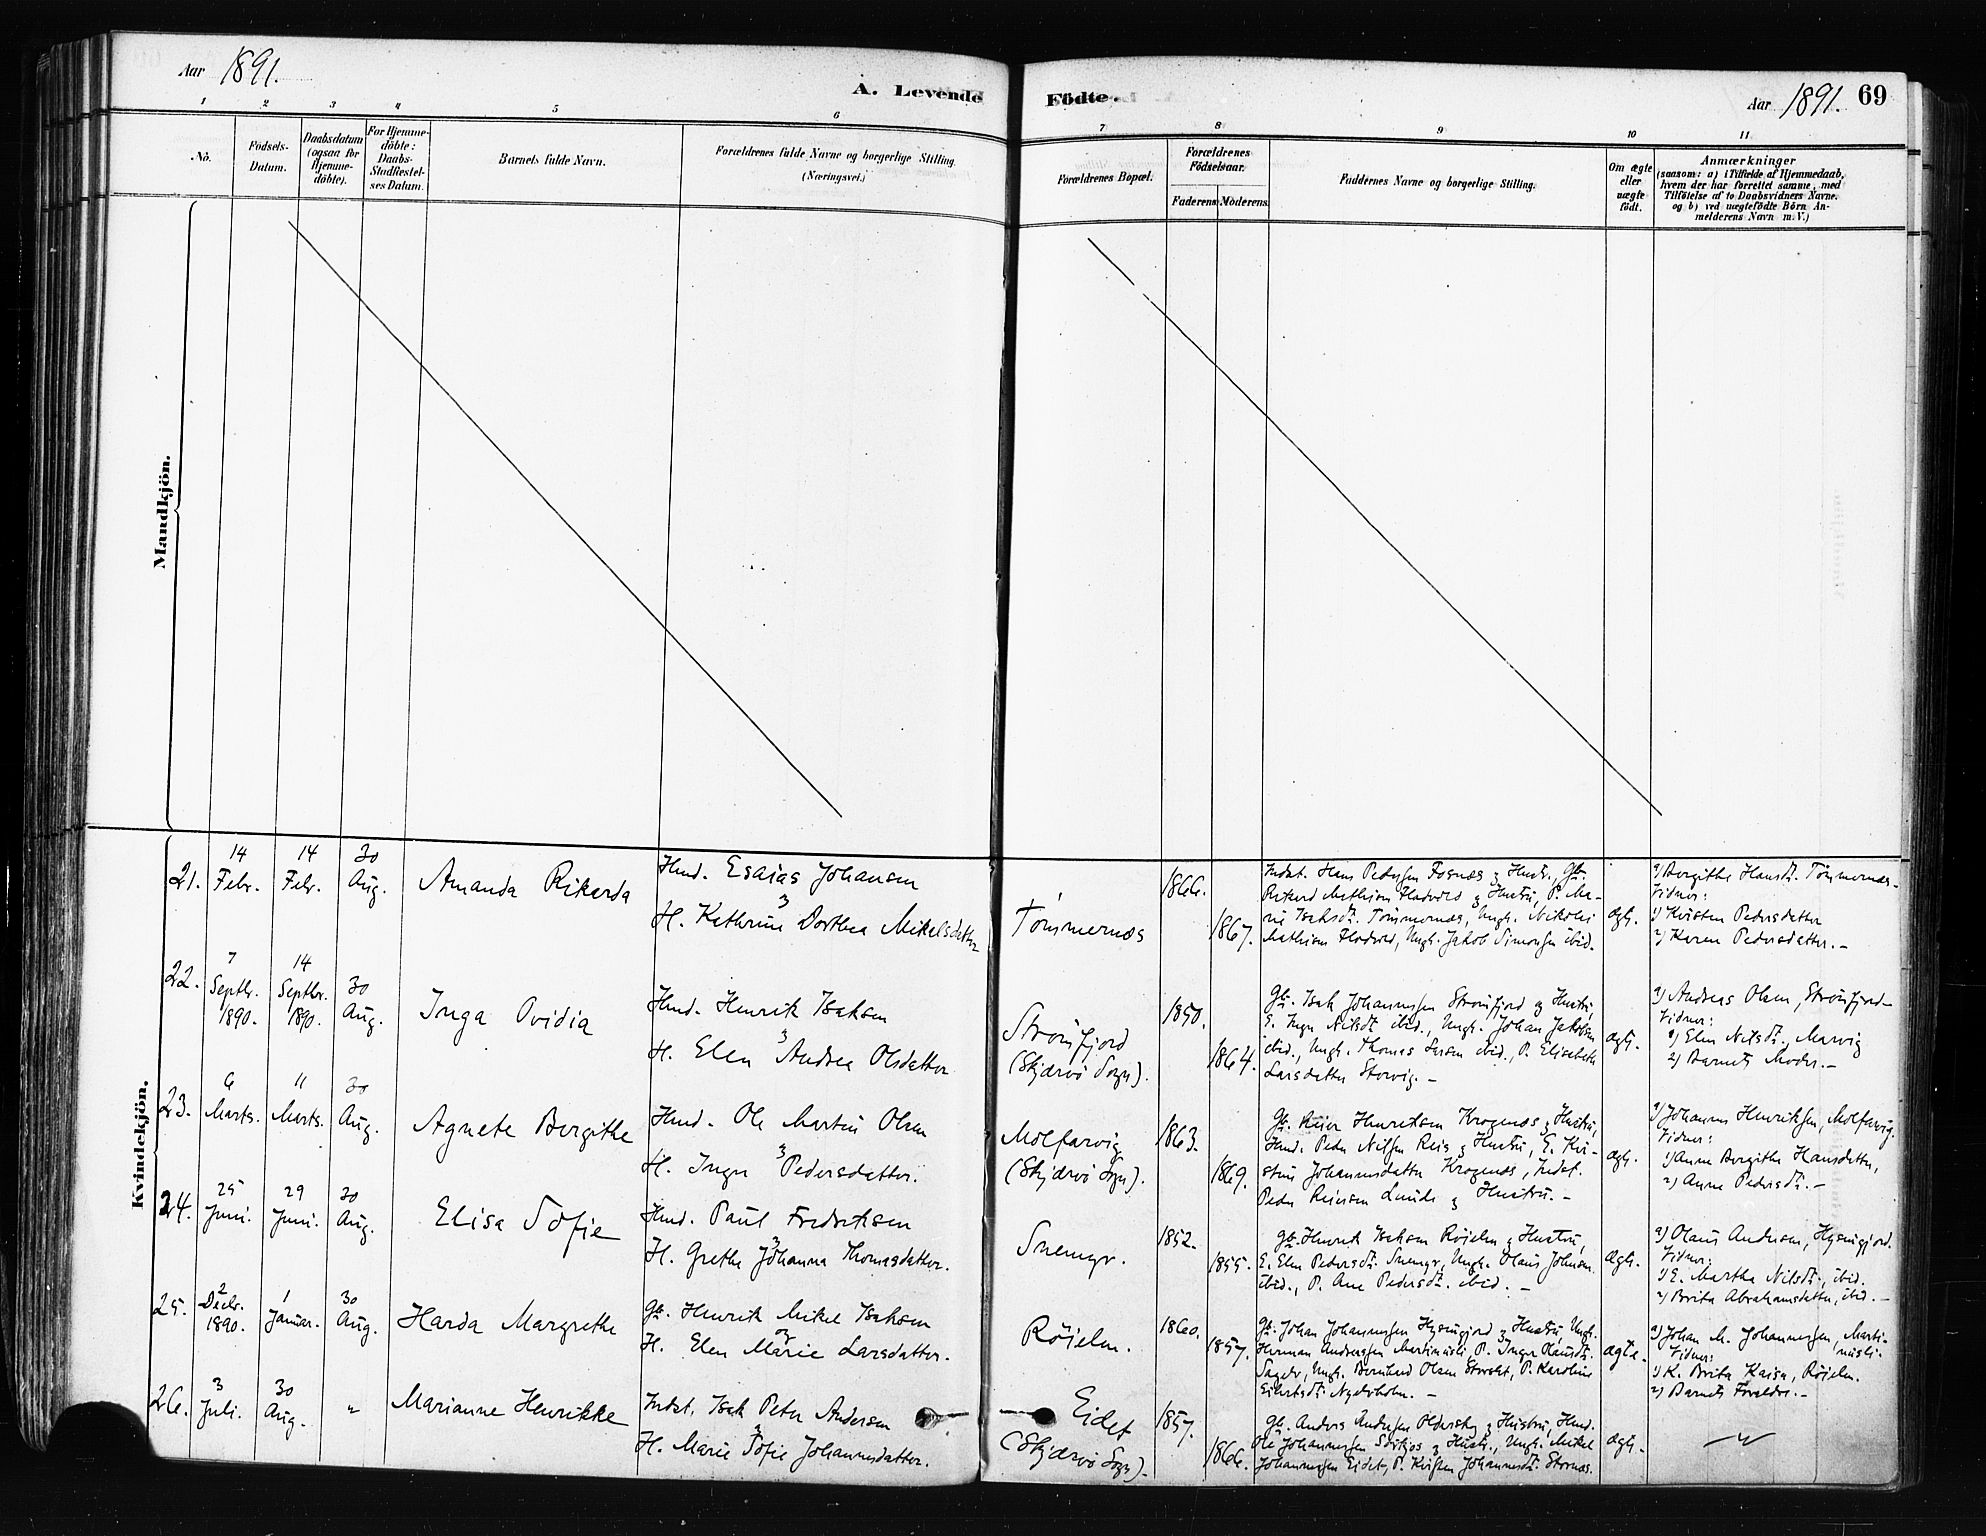 Aar 1891.
A. Levende
Födte.
Aar 1891. 69
1 2 3 4 5 6 7 8 9 10 11
No.
Födsels-
Datum.
Daabsdatum
(ogsaa for
Hjemme-
döbte).
For Hjemme-
döbte:
Daabs-
Stadfestel-
ses Datum.
Barnets fulde Navn.
Forældrenes fulde Navne og borgerlige Stilling.
(Næringsvei.)
Forældrenes Bopæl.
Forældrenes
Födselsaar.
Faderens. Moderens.
Faddernes Navne og borgerlige Stilling.
Om ægte
eller
uægte
födt.
Anmærkninger
(saasom: a) i Tilfælde af Hjemmedaab,
hvem der har forrettet samme, med
Tilföielse af to Daabsvidners Navne.
og b) ved uægtefödte Börn An-
melderens Navn m. V.)
Mandkjön.
Kvindekjön.
21.
14
Febr.
14
Febr.
30
Aug.
Amanda Rikarda
Hmd. Esaias Johansen
H. Kathrine Dorthea Mikelsdatter
Tömmernæs
1866.
1867.
Indst. Hans Pedersen Fosnæs og Hustr.,
Rikard Mathisen Hadvold og Hustru, P. Ma-
rie Isaksdt. Tömmernæs, Ungk. Nikolai
Mathisen Hadvold, Ungk. Jakob Simonsen ibid.
ægt.
a) Bergithe Hansdt. Tömmernæs.
Vidner:
1) Kristen Pedersdatter
2) Karen Pedersdatter. -
22.
7
Septbr.
1890.
14
Septbr.
1890.
30
Aug.
Inga Ovidia
Hmd. Henrik Isaksen
H. Elen Andrea Olsdatter
Strömfjord
(Skjærvö Sogn).
1850.
1864.
Gb. Isak Johannessen Strömfjord og Hustru,
E. Inger Nilsdt. ibid., Ungk. Johan Jakobsen
ibid., Ungk. Thomas Larsen ibid., P. Elisabeth
Larsdatter Storvig. -
ægt.
a) Andreas Olsen, Strömfjord
Vidner:
1) Elen Nilsdt., Marvig
2) Barnets Moder. -
23.
6
Marts.
11
Marts.
30
Aug.
Agnete Bergithe
Hmd. Ole Martin Olsen
H. Inger Pedersdatter.
Molfarvig
(Skjærvö Sogn).
1863.
1869.
Gb. Reier Henriksen Krogenæs og Hustru,
Hmd. Peder Nilsen Reis og Hustru, E. Kri-
stine Johannesdatter Krogenæs, Indst.
Peder Reiersen Lunde og Hustru. -
ægt.
a) Johannes Henriksen, Molfarvig.
Vidner:
1) Anne Bergithe Hansdatter,
2) Anne Pedersdt. -
24.
25
Juni.
29
Juni.
30
Aug.
Elisa Sofie
Hmd. Paul Fredriksen
H. Grethe Johanna Thomasdatter.
Snemyr.
1852.
1855.
Gb. Henrik Isaksen Röielen og Hustru,
E. Elen Pedersdt. Snemyr, Ungk. Olaus Johnsen
ibid., P. Ane Pedersdt. ibid. -
ægt.
a) Olaus Andersen,
Vidner:
1) E. Martha Nilsdt., ibid.
2) Brita Abrahamsdatter, ibid. -
25.
2
Decbr.
1890.
1
Januar.
30
Aug.
Harda Margrethe
Gb. Henrik Mikel Isaksen
H. Elen Marie Larsdatter.
Röielen.
1860.
1857.
Gb. Johan Johannessen og Hustru, Ungk.
Herman Anderssen P. Inger Olausdt.
Ungk. Bernhard Olsen P. Karoline
-
ægte.
a) Johan M. Johannessen,
Vidner:
1) K. Brita Kaisa, Röielen.
2) Barnets Forældre. -
26.
3
Juli.
30
Aug.
"
Marianne Henrikke
Indst. Isak Peter Andersen
H. Marie Sofie Johannesdatter.
Eidet
(Skjærvö Sogn).
1857.
1866.
Gb. Anders Andersen og Hustru, Hmd.
Ole Johannessen og Hustr., Ungk. Mikel
Johannessen Eidet, P. Kristen Johannesdt. Stornæs.
ægt.